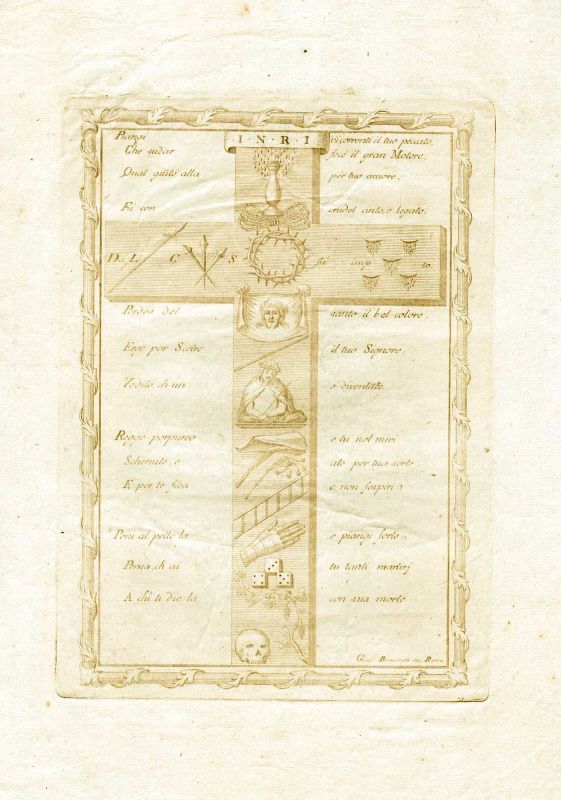 I · N · R · I
Piangi vi correnti il tuo peccato,
Che sudar fece il gran Motore,
Qual guito alla per tuo amore.
Fù con crudel cinto, e legato.
Da L C S fu' imp to
Perdes del santo il bel colore.
Erge per Scetro il tuo Signore.
Vedilo ch'un e diventato.
Regge porpureo e tu nol miri
Schernito e ato per tua sorte
E per te sfida e non sospiri?
Poni al petto la e piangi forte.
Pensa ch'ai tu tanti martirj
A chi ti diè la con sua morte